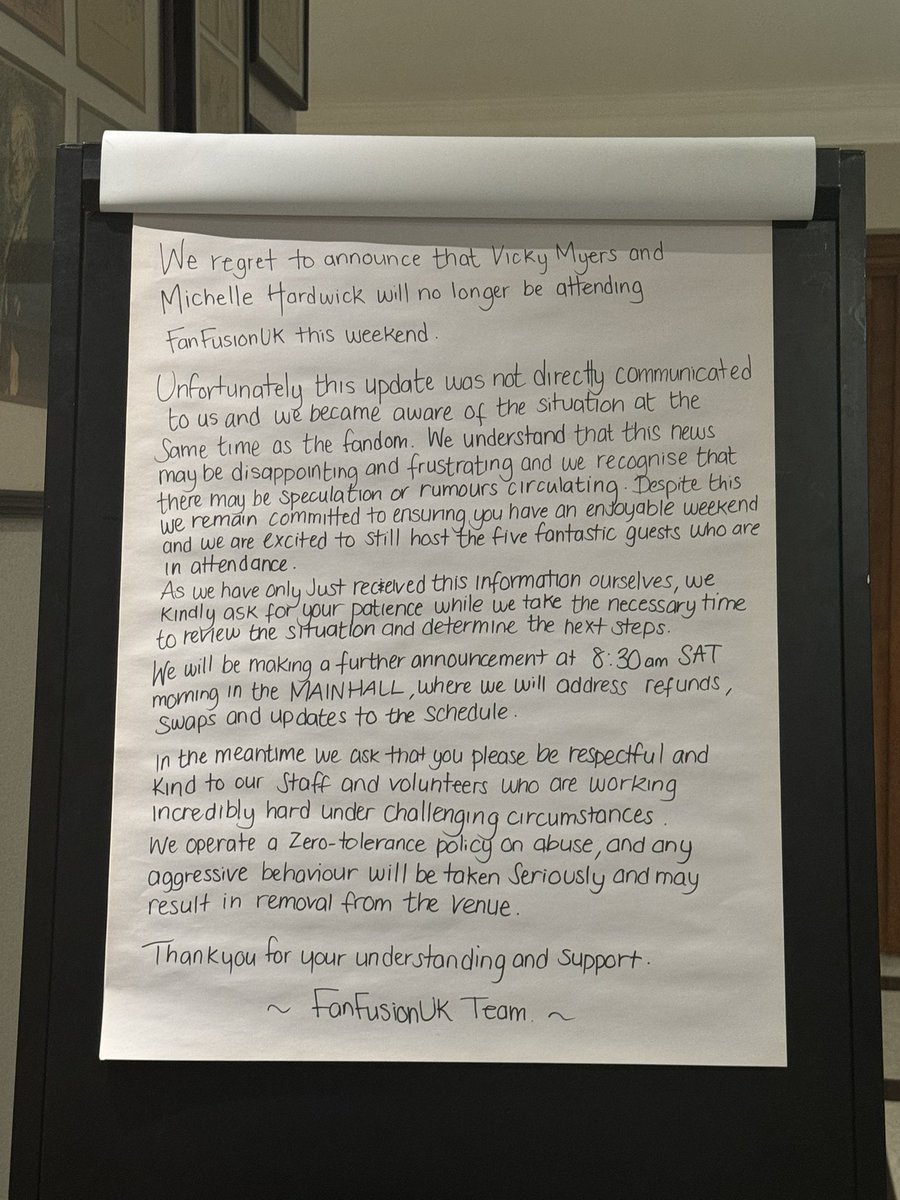 We regret to announce that Vicky Myers and
Michelle Hardwick will no longer be attending
FanFusionUK this weekend.
Unfortunately this update was not directly communicated
to us and we became aware of the situation at the
Same time as the fandom. We understand that this news
may be disappointing and frustrating and we recognise that
there may be speculation or rumours circulating. Despite this
we remain committed to ensuring you have an enjoyable weekend
and we are excited to still host the five fantastic guests who are
in attendance.
As we have only Just received this information ourselves, we
kindly ask for your patience while we take the necessary time
to review the situation and determine the next steps.
We will be making a further announcement at 8:30am SAT
morning in the MAINHALL, where we will address refunds,
swaps and updates to the schedule.
In the meantime we ask that you please be respectful and
kind to our staff and volunteers who are working
incredibly hard under challenging circumstances.
We operate a Zero-tolerance policy on abuse, and any
aggressive behaviour will be taken seriously and may
result in removal from the venue.
Thankyou for your understanding and support.
~ FanFusionUK Team. ~